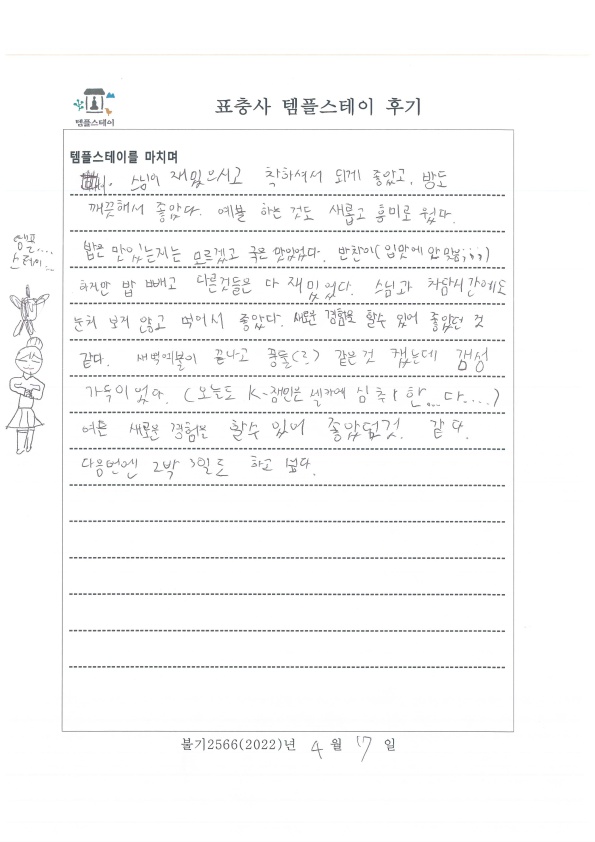 템플스테이
표충사 템플스테이 후기
템플스테이를 마치며
스님이 재밌으시고 착하셔서 되게 좋았고, 방도
깨끗해서 좋았다. 예불 하는 것도 새롭고 흥미로웠다.
템플...
스테이...
밥은 맛있는지는 모르겠고 국은 맛있었다. 반찬이(입맛에 안맞음;;;)
하지만 밥 빼고 다른것들은 다 재밌었다. 스님과 차담시간에도
눈치 보지 않고 먹어서 좋았다. 새로운 경험을 할수 있어 좋았던 것
같다. 새벽예불이 끝나고 종물(?) 같은것 했는데 갬성
가득이었다. (오늘도 K-잼민은 셀카에 심취한...다....)
여튼 새로운 경험은 할수 있어 좋았던것 같다.
다음번엔 2박 3일도 하고 싶다.
불기2566(2022)년 4 월 17 일